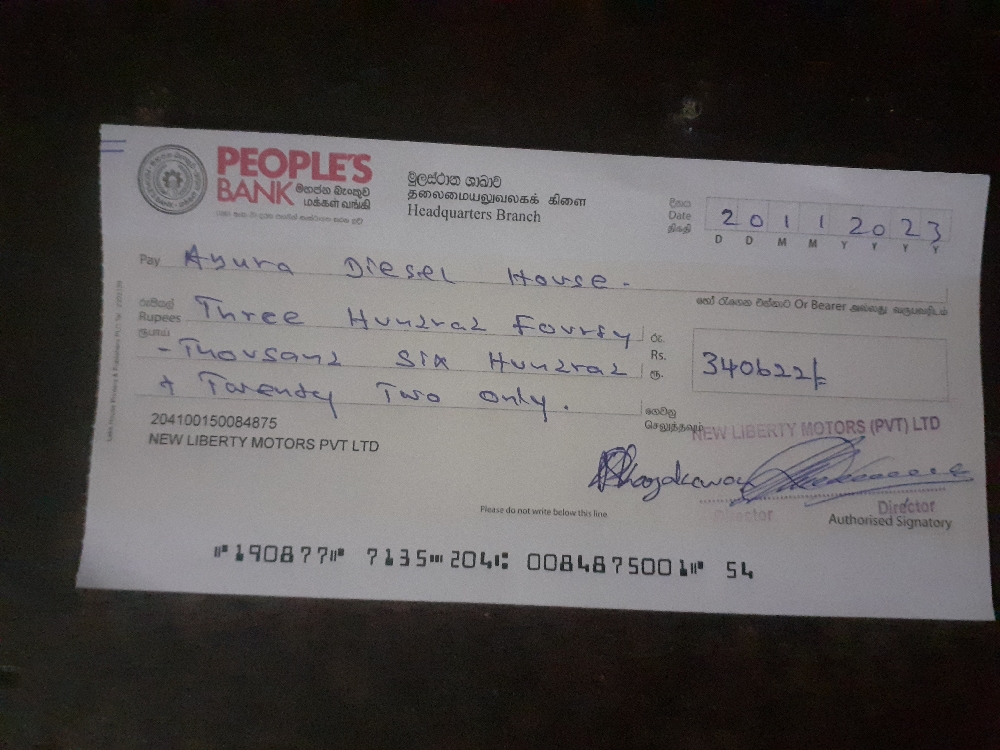 PEOPLE'S
BANK මහජන බැංකුව
மக்கள் வங்கி
මූලස්ථාන ශාඛාව
தலைமையலுவலகக் கிளை
Headquarters Branch
දිනය
Date
திகதி
2 0 1 1 2 0 2 3
D D M M Y Y Y Y
Pay Anura Diesel House.
හෝ රැගෙන එන්නාට Or Bearer அல்லது வருபவரிடம்
රුපියල්
Rupees
ரூபாய்
Three Hundred Fourty
- Thousand Six Hundred
+ Twenty Two only.
රු.
Rs.
ரூ.
340622/=
ගෙවනු
செலுத்தவும்
204100150084875
NEW LIBERTY MOTORS PVT LTD
NEW LIBERTY MOTORS (PVT) LTD
Director
Director
Authorised Signatory
Please do not write below this line
⑈190877⑈ 7135⑉204⑆ 0084875001⑈ 54